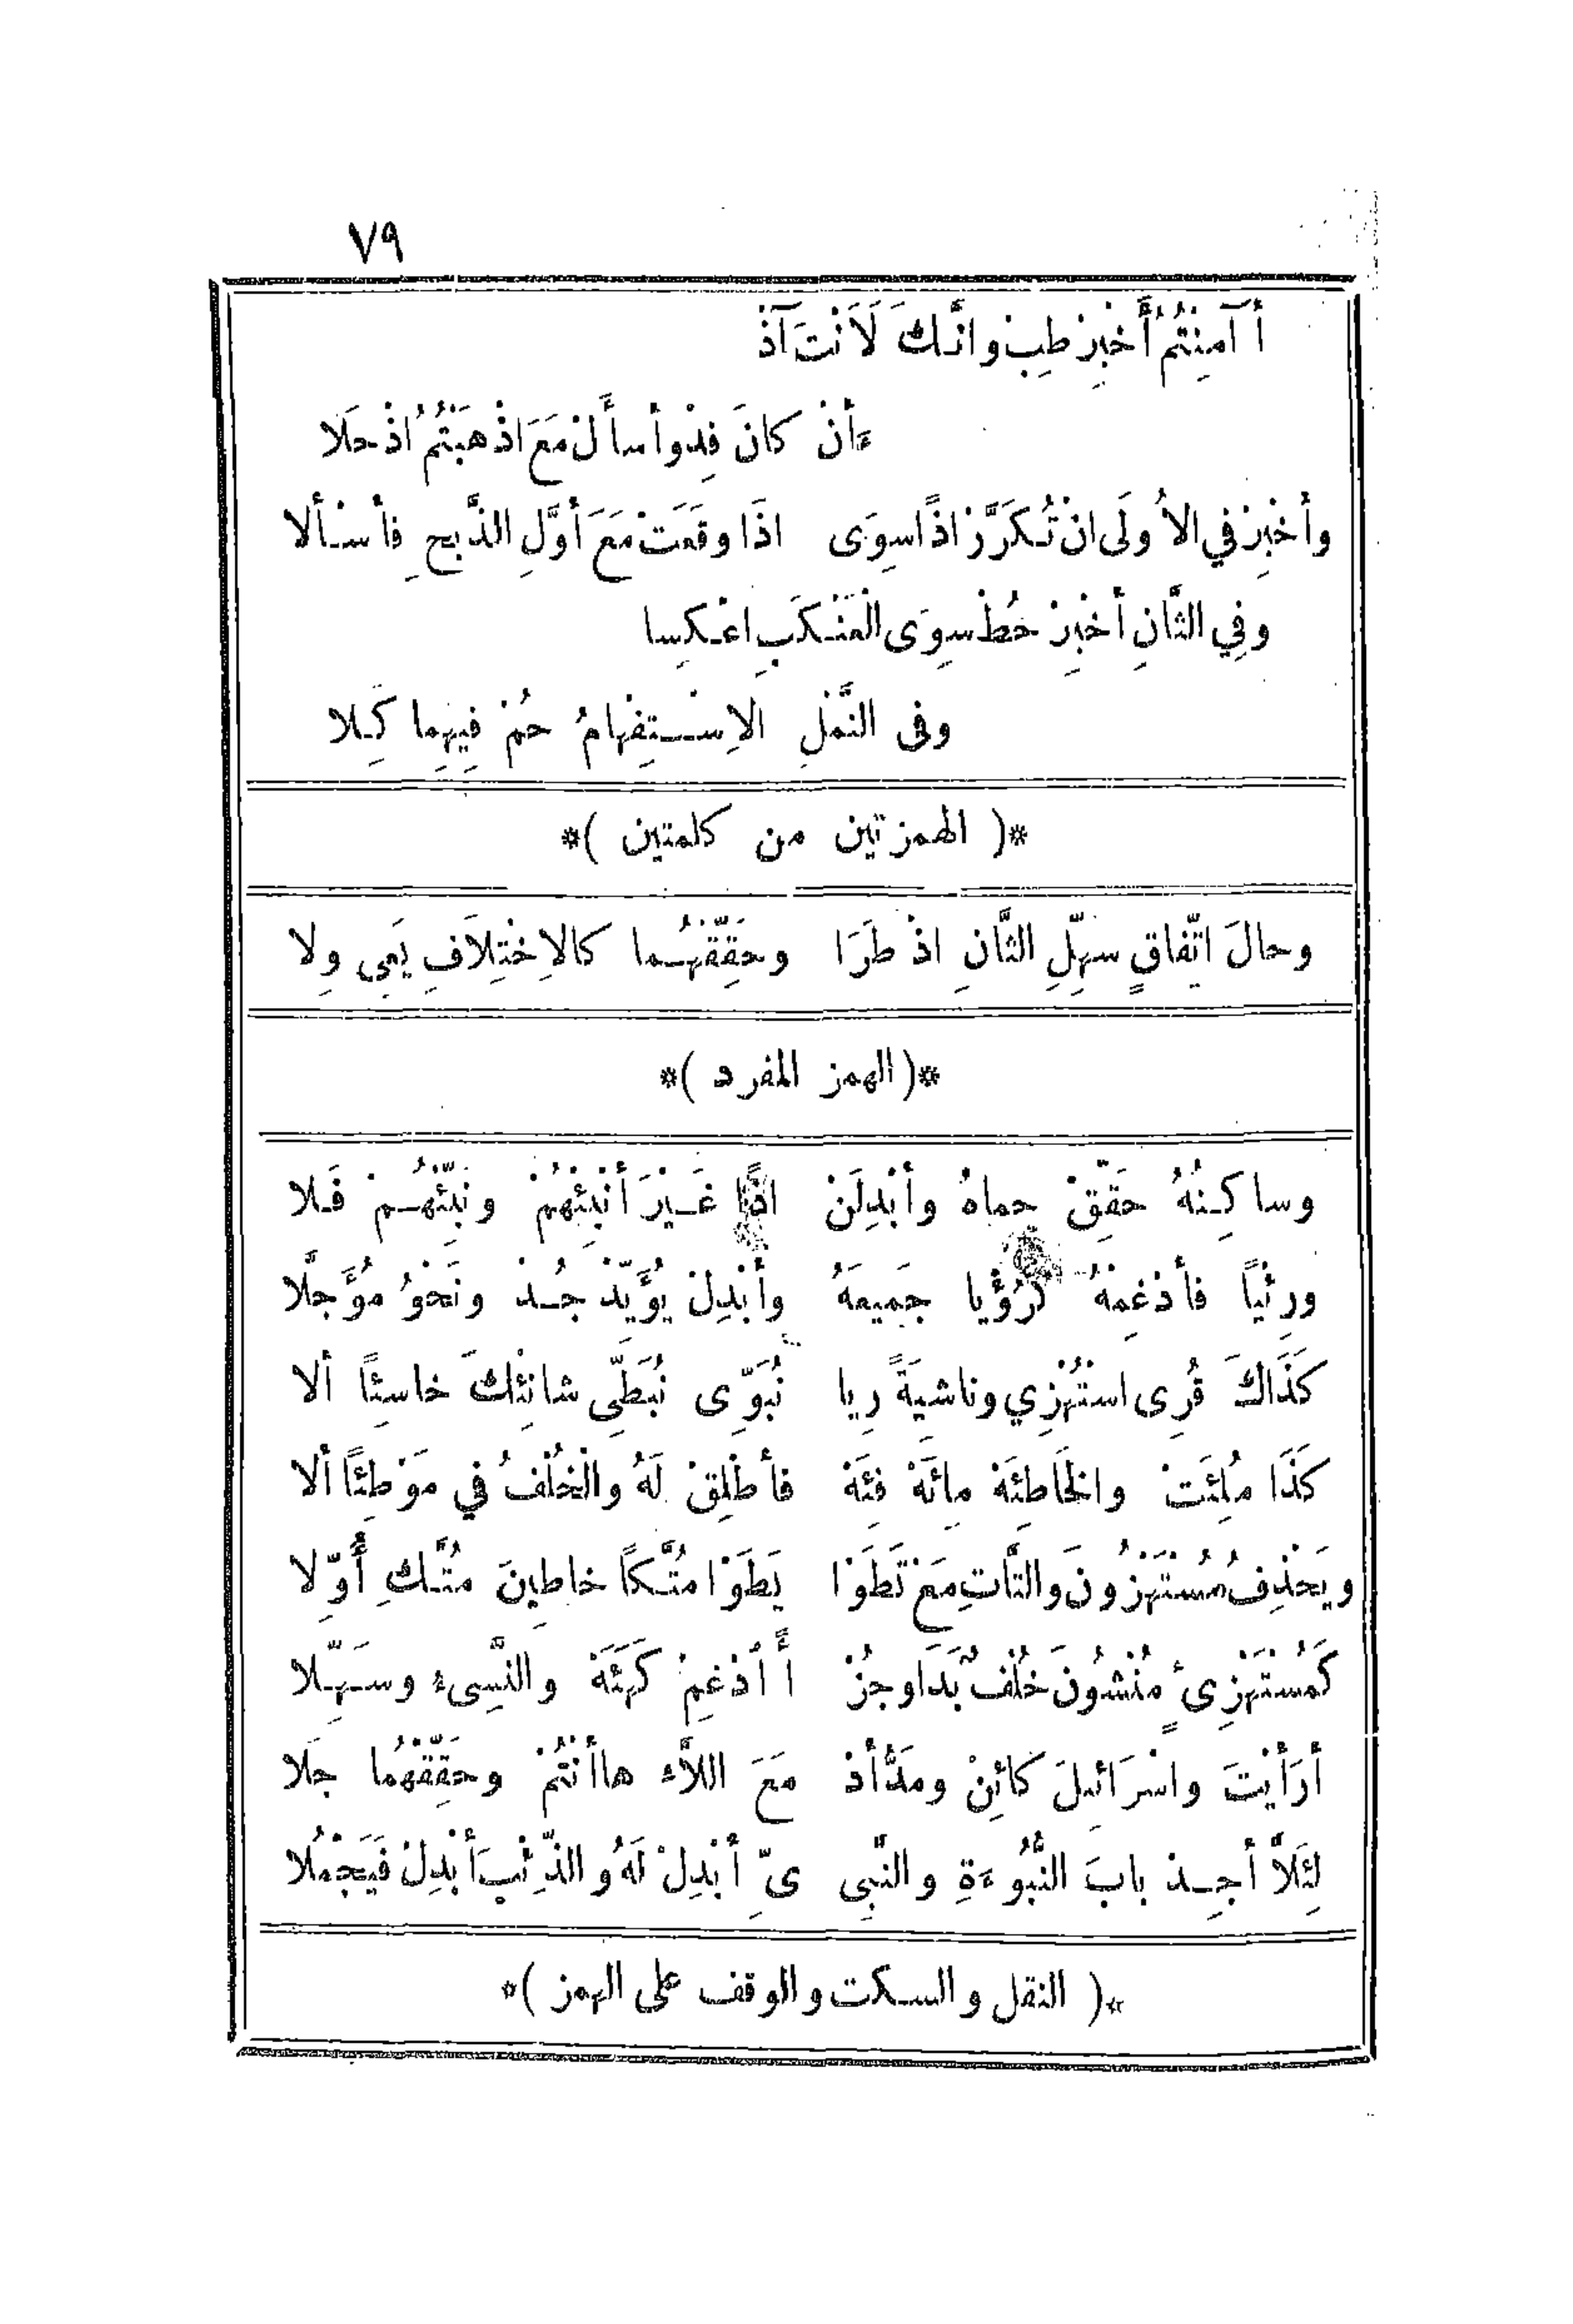 ٧٩
أآمِنْتُمُ أَخْبِرْ طِبْ وانَّكَ لَاَنْتَ آذْ
ءَأنْ كانَ فِدْ واسأَلْ مَعَ اذْهَبْتُمُ اذْ حَلا
وأخْبِرْ في الأُولَى انْ تُكَرَّرْ اذًا سِوَى اذَا وقَعَتْ مَعَ أوَّلِ الذِّبحِ فأسْألا
وفِي الثَّانِ أخْبِرْ حُطْ سِوَى الْعَنْكَبِ اعْكِسا
وفى النَّمْلِ الاِسْتِفْهامُ حُمْ فِيهِما كِلا
*( الهمزتين من كلمتين )*
وحالَ اتّفاقٍ سهّلِ الثَّانِ اذْ طَرَا وحَقِّقْهُما كالاِخْتِلَافِ يَعِى وِلا
*(الهمز المفرد )*
وساكِنُهُ حَقِّقْ حِماهُ وأبْدِلَنْ اذًا غَيْرَ أنْبِئْهُمْ ونَبِّئْهُمْ فَلا
ورِئْياً فأدْغِمْهُ كَرُؤْيا جَمِيعَهُ وأبْدِلْ يُؤَيِّدْ جُدْ ونَحْوُ مُؤَجَّلَا
كَذَاكَ قُرِى اسْتُهْزِي وناشِيَةً رِيا نُبَوِّى نُبَطِّى شانِئْكَ خاسِئًا ألا
كَذَا مُلِئَتْ والخَاطِئَهْ مِائَهْ فِئَهْ فأطْلِقْ لَهُ والْخُلْفُ في مَوْطِئًا ألا
ويَحْذِفُ مُسْتَهْزُونَ والتَّاتِ مَعْ تَطَوْا يَطَوْا مُتَّكًا خاطِينَ مُتَّكِ أُوّلا
كَمُسْتَهْزِىءُ مُنْشُونَ خُلْفٌ بَدَا وجُزْ أَ أدْغِمْ كَهَيْئَهْ والنَّسِىءُ وسَهّلا
أرَأَيْتَ واسْرَائِيلَ كائِنْ ومَدَّ أذْ مَعَ اللَّاءِ هاأنْتُمْ وحَقِّقْهُما حَلا
لِئَلَّا أجِدْ بابَ النُّبُوءَةِ والنَّبِى ىِّ أبْدِلْ لَهُ والذِّئْبَ أبْدِلْ فَيَجْمُلا
*( النقل والسكت والوقف على الهمز )*